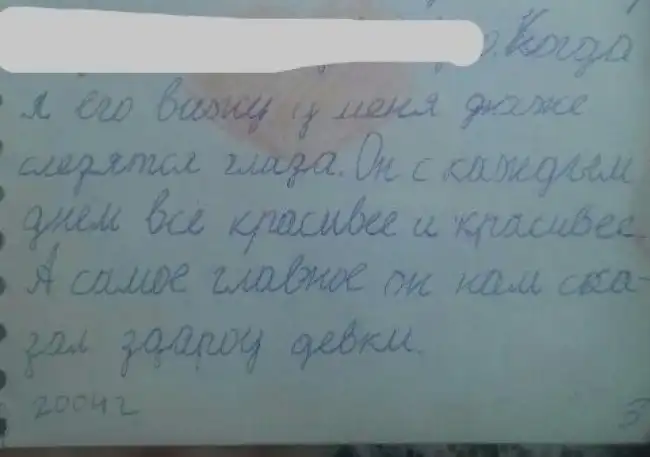 Когда
я его важу у меня даже
слезятся глаза. Он с каждым
днем все красивее и красивее.
А самое главное он нам ска-
зал здароу девки.
2004г